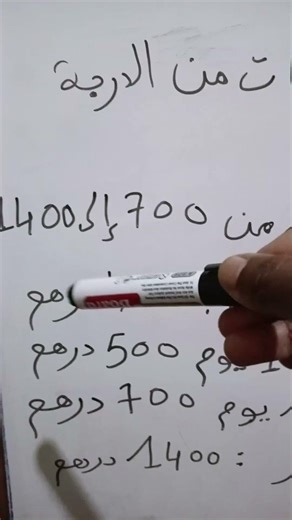 ات من الدرجة
من 700 إلى 1400
درهم
يوم 500 درهم
يوم 700 درهم
: 1400 درهم